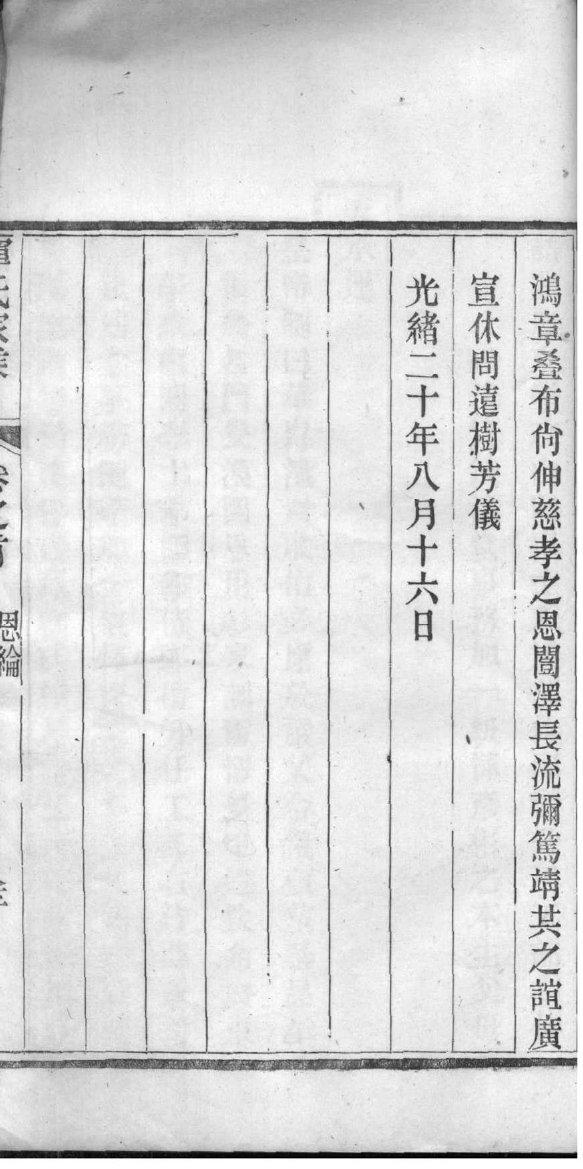 鴻章叠布尙伸慈孝之恩闓澤長流彌篤靖共之誼廣
宣休問遠樹芳儀
光緒二十年八月十六日
氏家乘
卷之首
恩綸